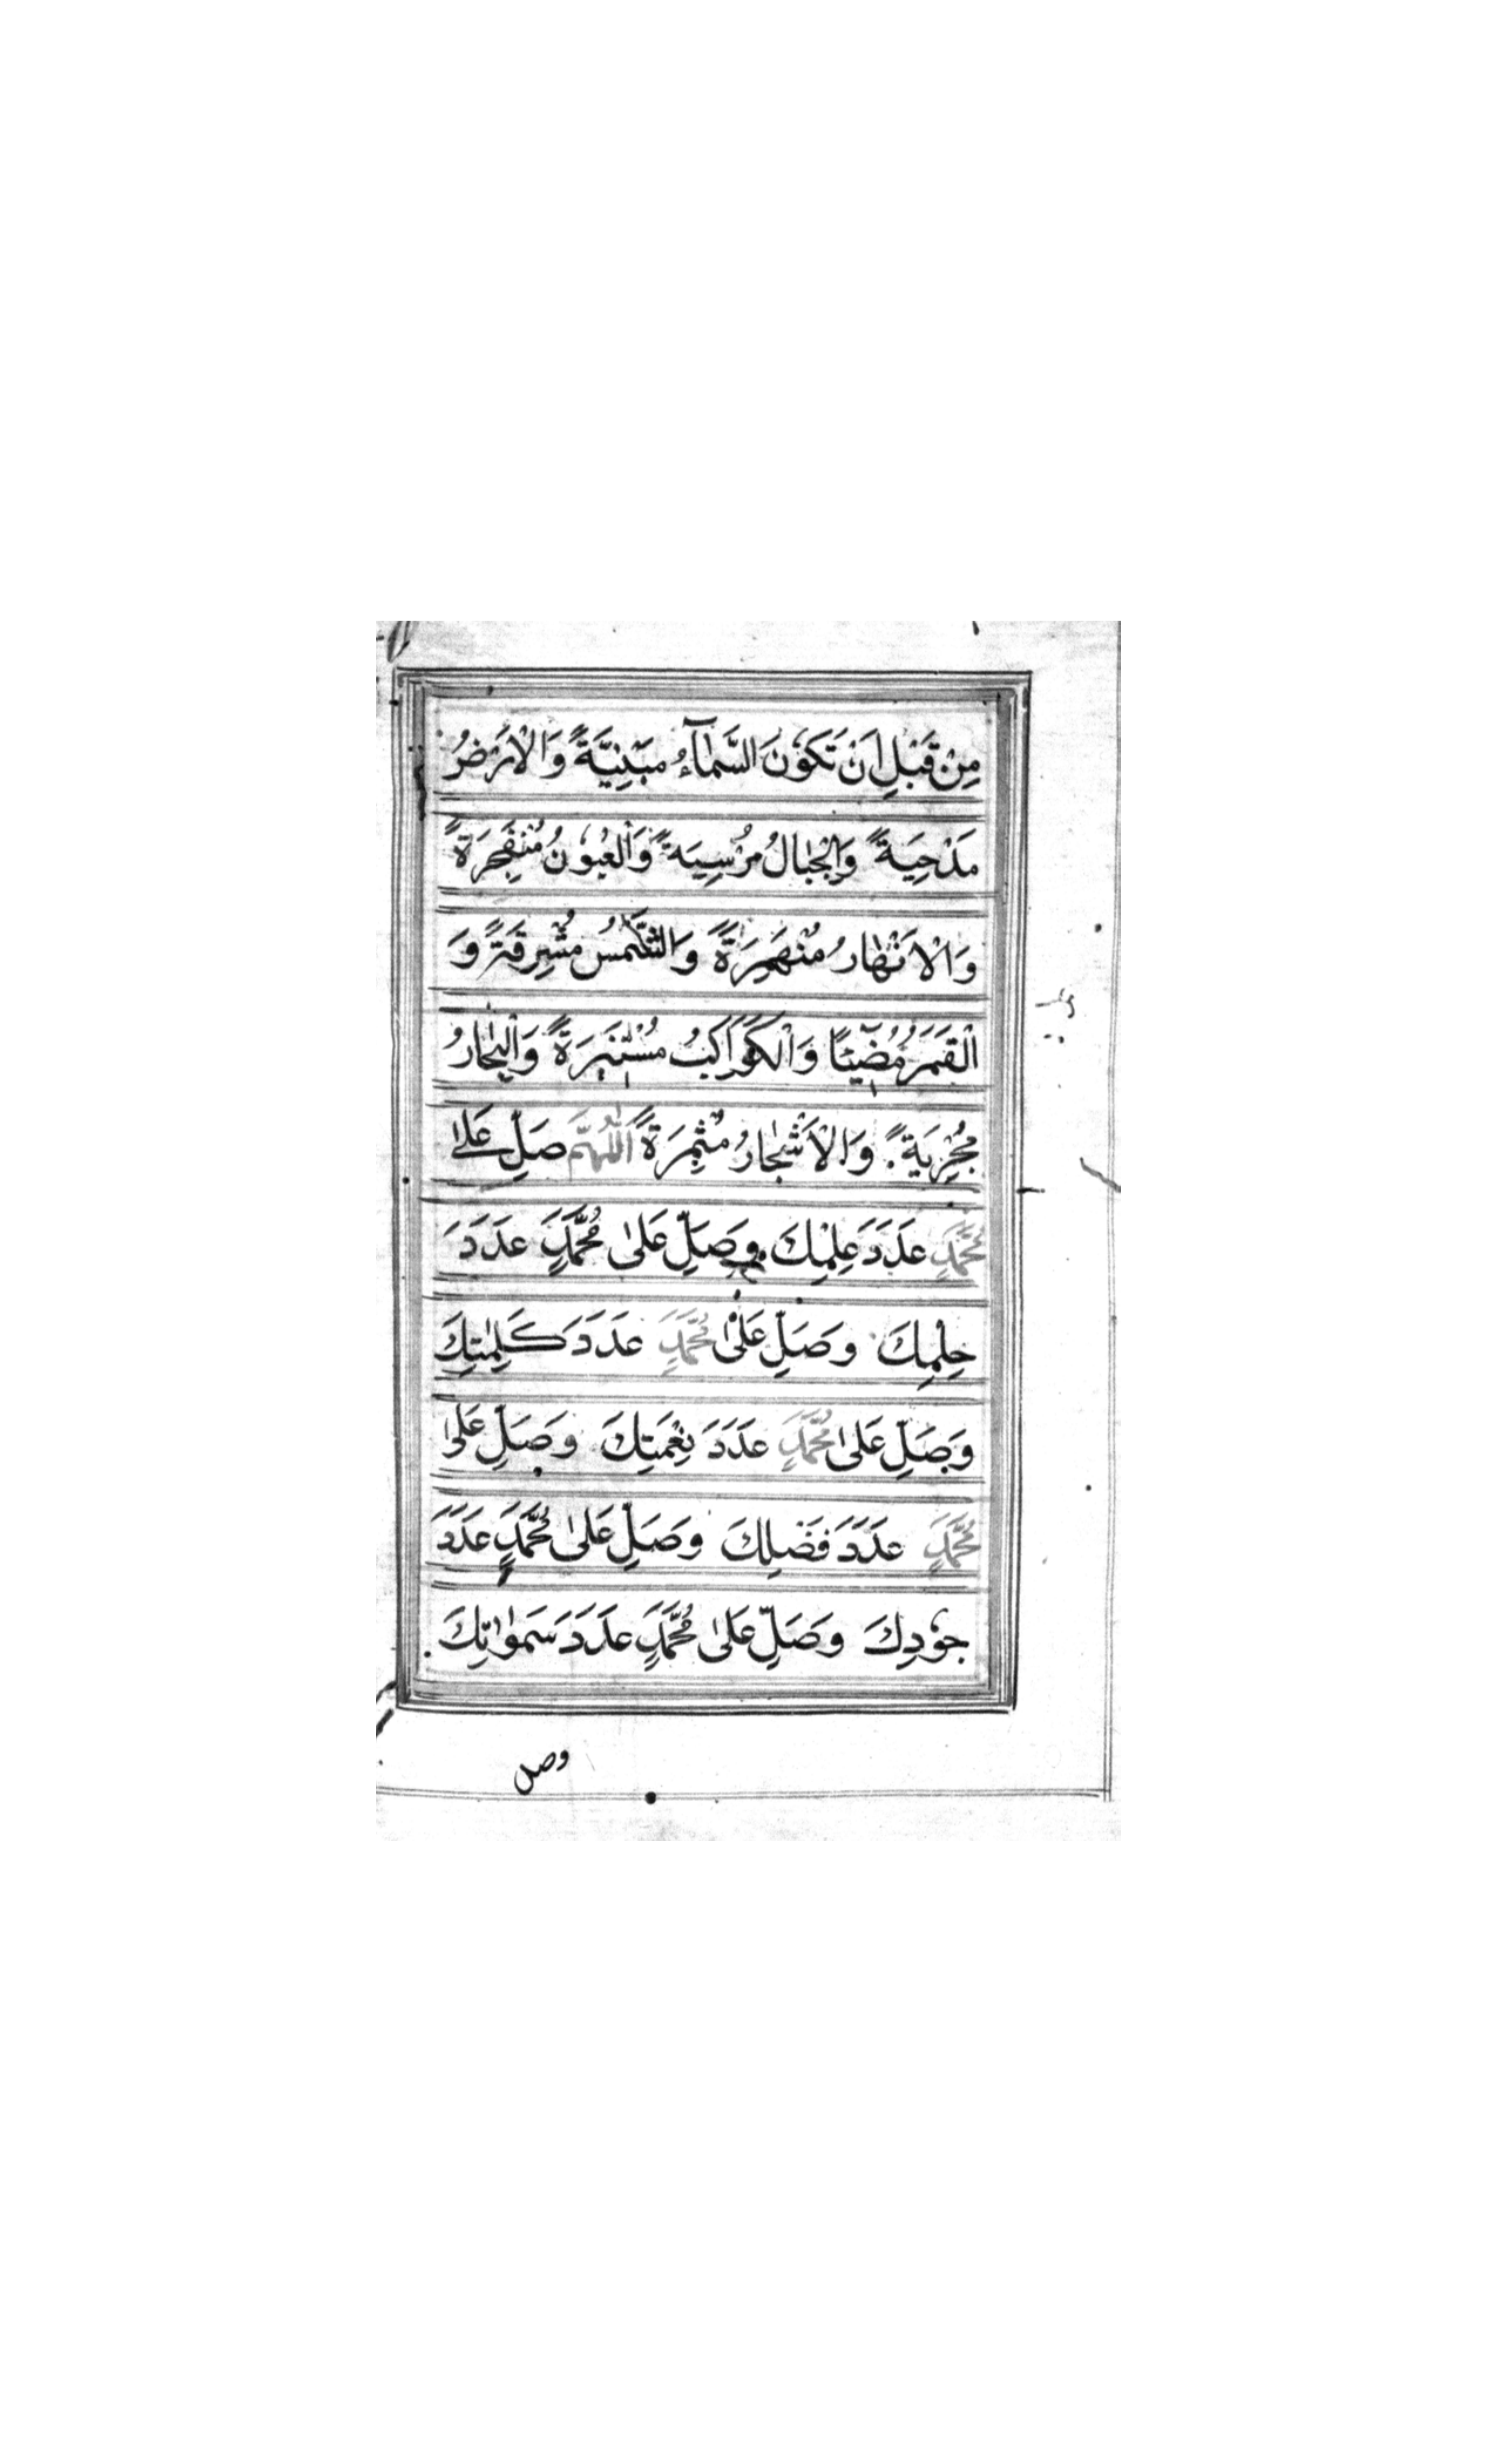 مِنْ قَبْلِ اَنْ تَكُوْنَ السَّمَآءُ مَبْنِيَّةً وَالْاَرْضُ
مَدْحِيَةً وَالْجِبَالُ مُرْسِيَةً وَالْعُيُوْنُ مُنْفَجِرَةً
وَالْاَنْهَارُ مُنْهَمِرَةً وَالشَّمْسُ مُشْرِقَةً وَ
الْقَمَرُ مُضِيْئًا وَالْكَوَاكِبُ مُسْتَنِيْرَةً وَالْبِحَارُ
مُجْرِيَةً وَالْاَشْجَارُ مُثْمِرَةً اَللّٰهُمَّ صَلِّ عَلٰى
مُحَمَّدٍ عَدَدَ عِلْمِكَ وَصَلِّ عَلٰى مُحَمَّدٍ عَدَدَ
حِلْمِكَ وَصَلِّ عَلٰى مُحَمَّدٍ عَدَدَ كَلِمٰتِكَ
وَصَلِّ عَلٰى مُحَمَّدٍ عَدَدَ نِعْمَتِكَ وَصَلِّ عَلٰى
مُحَمَّدٍ عَدَدَ فَضْلِكَ وَصَلِّ عَلٰى مُحَمَّدٍ عَدَدَ
جُوْدِكَ وَصَلِّ عَلٰى مُحَمَّدٍ عَدَدَ سَمٰوَاتِكَ
وصل